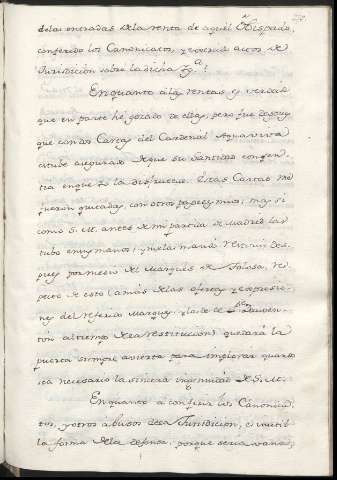 de las entradas de la renta de aquel Obispado,
conferido los Canonicatos, y exercido actos de
Jurisdicion sobre la dicha Yg.ª
En quanto a las rentas es verdad
que en parte he gozado de ellas, pero fue despues
que con dos Cartas del Cardenal Aquaviva
estube asegurado de que Su Santidad consen-
tia en que Yo la disfrutase. Estas Cartas me
fueron quitadas, con otros papeles mios, mas si
como S. M. antes de mi partida de Madrid las
tubo en sus manos, y me las mandó restituir des-
pues por medio del Marqués de Tolosa, res-
pecto de esto (a mas de las ofertas y expresio-
nes del referido Marques, y las de
ton al tiempo de la restitucion) quedará la
puerta siempre avierta para implorar quando
sea necesario la sincera ingenuidad de S. M.
En quanto a conferir los Canonica-
tos, y otros abusos de la Jurisdicion, es inutil
la forma de la defensa, porque seria vana,